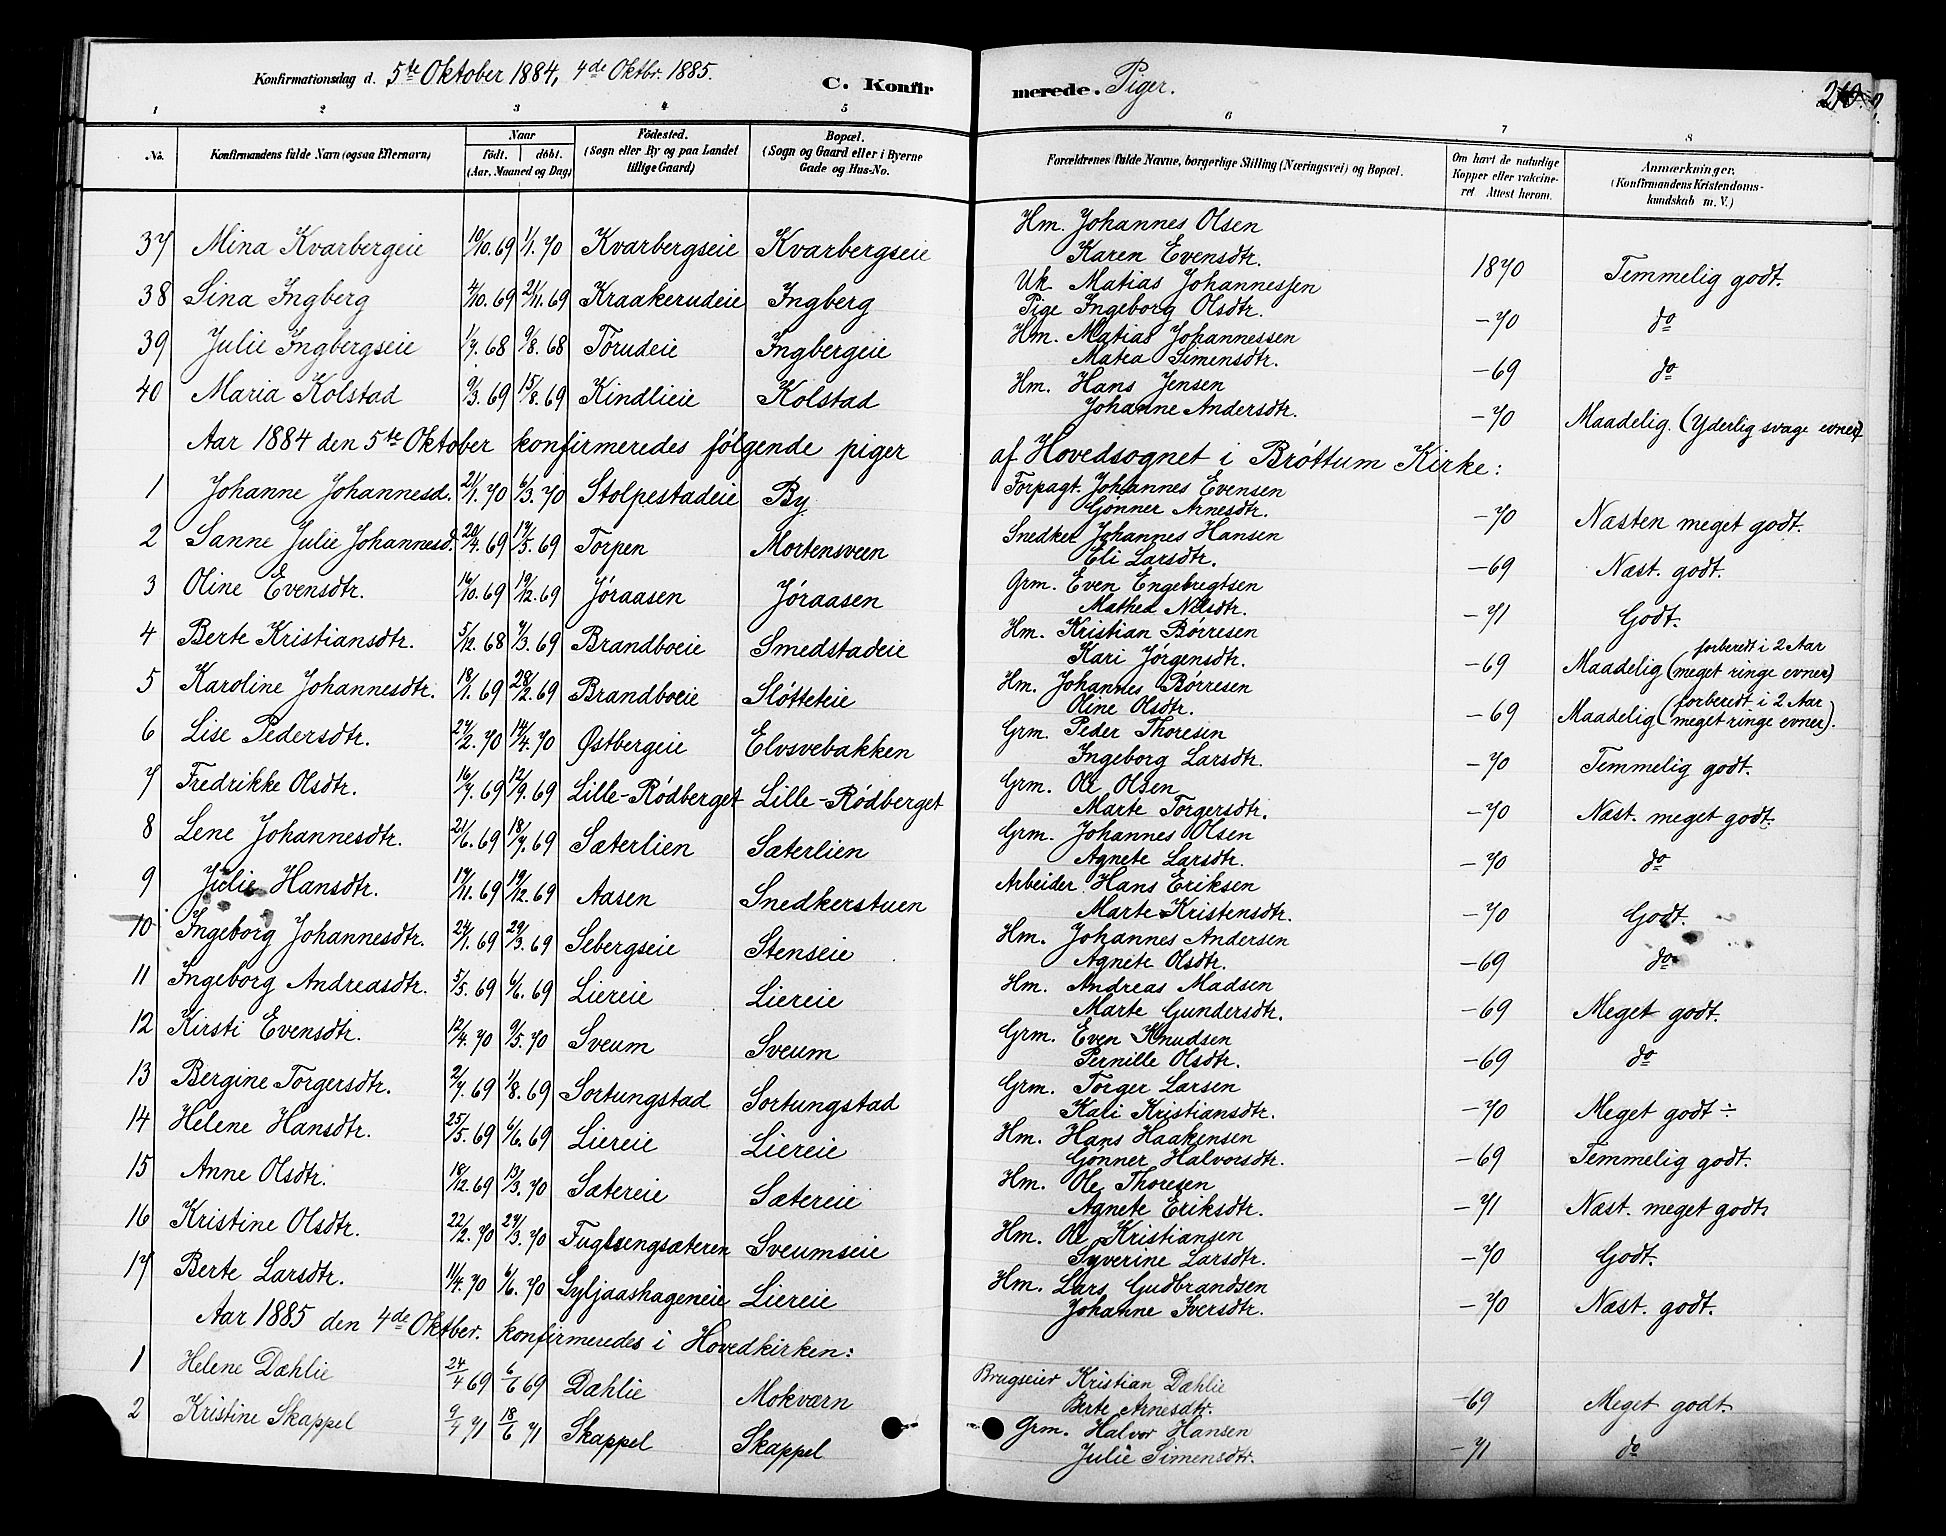 Konfirmationsdag d. 5te Oktober 1884, 4de Oktbr. 1885. C. Konfirmerede. Piger.
1 2 3 4 5 6 7 8
No. Konfirmandens fulde Navn (ogsaa Efternavn) Naar født. døbt. (Aar, Maaned og Dag) Fødested. (Sogn eller By og paa Landet tillige Gaard) Bopæl. (Sogn og Gaard eller i Byerne Gade og Hus-No. Forældrenes fulde Navne, borgerlige Stilling (Næringsvei) og Bopæl. Om havt de naturlige Kopper eller vakcineret Attest herom. Anmærkninger. (Konfirmandens Kristendomskundskab m. V.)
37 Mina Kvarbergeie 10/10. 69 1/1. 70 Kvarbergseie Kvarbergseie Hm. Johannes Olsen Karen Evensdtr. 1870 Temmelig godt.
38 Sina Ingberg 4/10. 69 21/11. 69 Kraakerudeie Ingberg Uk Matias Johannessen Pige Ingeborg Olsdtr. -70 do
39 Julie Ingbergseie 1/7. 68 9/8. 68 Torudeie Ingbergeie Hm. Matias Johannessen Matea Simensdtr. -69 do
40 Maria Kolstad 9/3. 69 15/8. 69 Kindlieie Kolstad Hm. Hans Jensen Johanne Andersdtr. -70 Maadelig. (Yderlig svage evner)
Aar 1884 den 5te Oktober konfirmeredes følgende piger af Hovedsognet i Brøttum Kirke:
1 Johanne Johannesd. 21/1. 70 6/3. 70 Stolpestadeie By Forpagt. Johannes Evensen Gønner Arnesdtr. -70 Næsten meget godt.
2 Sanne Julie Johannesd. 20/4. 69 17/5. 69 Torpen Mortensveen Snedker Johannes Hansen Eli Larsdtr. -69 Næst. godt.
3 Oline Evensdtr. 16/10. 69 19/12. 69 Jøraasen Jøraasen Grm. Even Engebregtsen Mathea Nilsdtr. -71 Godt.
4 Berte Kristiansdtr. 5/12. 68 7/3. 69 Brandboeie Smedstadeie Hm. Kristian Børresen Kari Jørgensdtr. -69 Maadelig (forberedt i 2 Aar meget ringe evner)
5 Karoline Johannesdtr. 18/1. 69 28/2. 69 Brandboeie Slótteteie Hm. Johannes Børresen Oline Olsdtr. -69 Maadelig (forberedt i 2 Aar meget ringe evner).
6 Lise Pedersdtr. 27/2. 70 14/4. 70 Østbergeie Elvsvebakken Grm. Peder Thoresen Ingeborg Larsdtr. -70 Temmelig godt.
7 Fredrikke Olsdtr. 16/7. 69 12/9. 69 Lille-Rødberget Lille-Rødberget Grm. Ole Olsen Marte Torgersdtr. -70 Næst. meget godt
8 Lene Johannesdtr. 21/6. 69 18/7. 69 Sæterlien Sæterlien Grm. Johannes Olsen Agnete Larsdtr. -70 do
9 Julie Hansdtr. 17/11. 69 19/12. 69 Aasen Snedkerstuen Arbeider. Hans Eriksen Marte Kristensdtr. -70 Godt.
10 Ingeborg Johannesdtr. 24/1. 69 29/3. 69 Sebergseie Stenseie Hm. Johannes Andersen Agnete Olsdtr. -69 do
11 Ingeborg Andreasdtr. 5/5. 69 6/6. 69 Liereie Liereie Hm. Andreas Madsen Marte Gundersdtr. -69 Meget godt.
12 Kirsti Evensdtr. 12/4. 70 9/5. 70 Sveum Sveum Grm. Even Knudsen Pernille Olsdtr. -69 do
13 Bergine Torgersdtr. 2/7. 69 1/8. 69 Sortungstad Sortungstad Grm. Torger Larsen Kari Kristiansdtr. -70 Meget godt ÷
14 Helene Hansdtr. 25/5. 69 6/6. 69 Liereie Liereie Hm. Hans Haakensen Gønner Halvorsdtr. -69 Temmelig godt.
15 Anne Olsdtr. 18/12. 69 13/3. 70 Sætereie Sætereie Hm. Ole Thoresen Agnete Eriksdtr. -71 Næst. meget godt
16 Kristine Olsdtr. 22/2. 70 27/3. 70 Fuglsengsæteren Sveumseie Hm. Ole Kristiansen Syverine Larsdtr. -70 Godt.
17 Berte Larsdtr. 11/4. 70 6/6. 70 Syljaashageneie Liereie Hm. Lars Gudbrandsen Johanne Iversdtr. -70 Næst. godt.
Aar 1885 den 4de Oktber. konfirmeredes i Hovedkirken:
1 Helene Dæhlie 24/4 69 6/6 69 Dæhlie Mokværn Brugseier Kristian Dæhlie Berte Arnesdtr. -69 Meget godt.
2 Kristine Skappel 9/4 71 18/6 71 Skappel Skappel Grm. Halvor Hansen Julie Simensdtr. -71 do